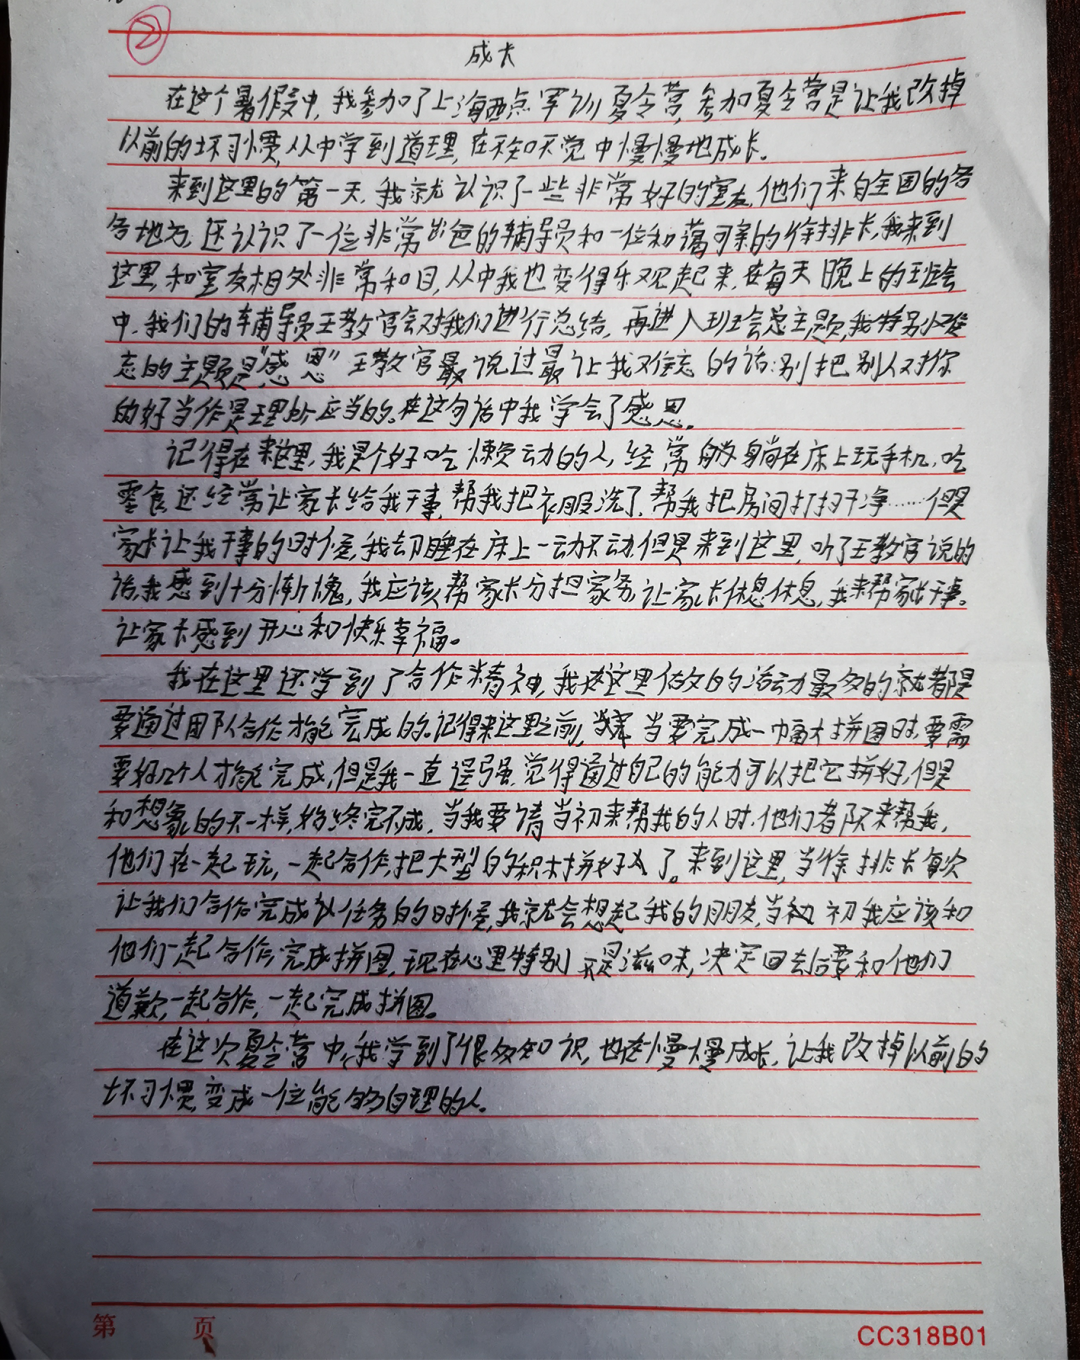 ②
成长
在这个暑假中,我参加了上海西点军训夏令营,参加夏令营是让我改掉
以前的坏习惯,从中学到道理,在不知不觉中慢慢地成长。
来到这里的第一天,我就认识了一些非常好的室友,他们来自全国的各
各地方,还认识了一位非常出色的辅导员和一位和蔼可亲的徐排长,我来到
这里,和室友相处非常和目,从中我也变得乐观起来,在每天晚上的班会
中,我们的辅导员王教官会对我们进行总结,再进入班会总主题,我特别难
忘的主题是“感恩”王教官最说过最让我难忘的话:别把别人对你
的好当作是理所应当的。在这句话中我学会了感恩。
记得在来这里,我是个好吃懒动的人,经常躺在床上玩手机,吃
零食还经常让家长给我干事,帮我把衣服洗了,帮我把房间打扫干净……但是
家长让我干事的时候,我却睡在床上一动不动但是来到这里,听了王教官说的
话,我感到十分惭愧,我应该帮家长分担家务,让家长休息休息,我来帮家长干事。
让家长感到开心和快乐幸福。
我在这里还学到了合作精神,我在这里做文的活动最多的就都是
要通过团队合作才能完成的。记得来这里之前,当要完成一幅大拼图时,要需
要好几个人才能完成,但是我一直逞强,觉得通过自己的能力可以把它拼好,但是
和想象的不一样,始终完不成,当我要请当初来帮我的人时,他们都不来帮我,
他们在一起玩,一起合作,把大型的积木拼好了。来到这里,当徐排长每次
让我们合作完成以任务的时候,我就会想起我的朋友,当初初我应该和
他们一起合作,完成拼图,现在心里特别不是滋味,决定回去后要和他们
道歉,一起合作,一起完成拼图。
在这次夏令营中,我学到了很多知识,也在慢慢成长,让我改掉以前的
坏习惯,变成一位能够自理的人。
第 页
CC318B01